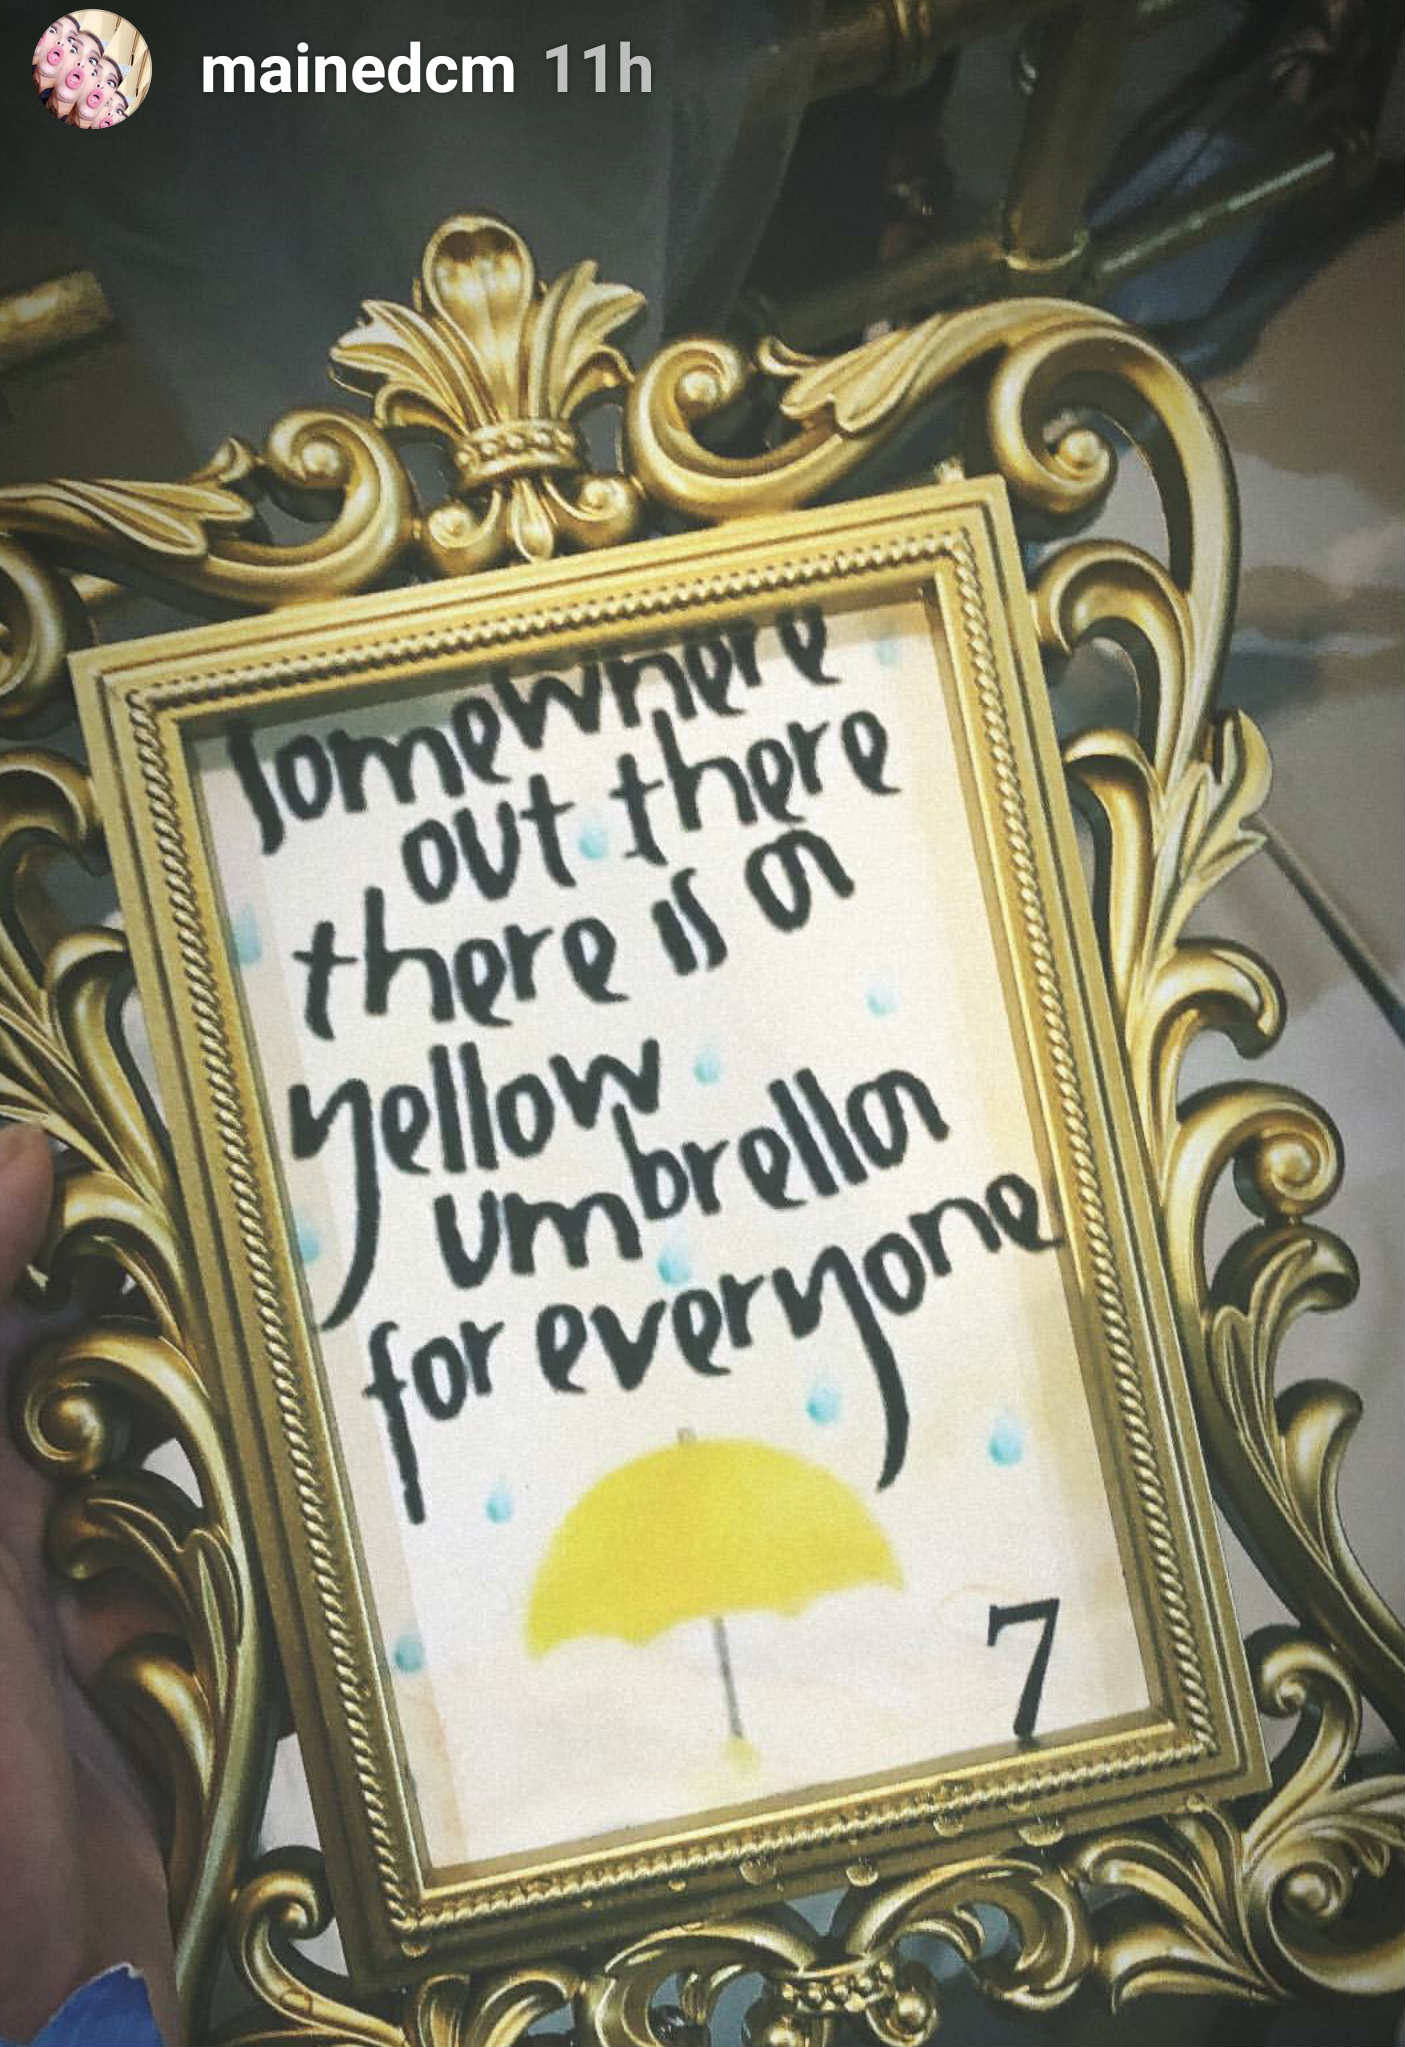 mainedcm 11h
somewhere
out there
there is a
yellow
umbrella
for everyone
7